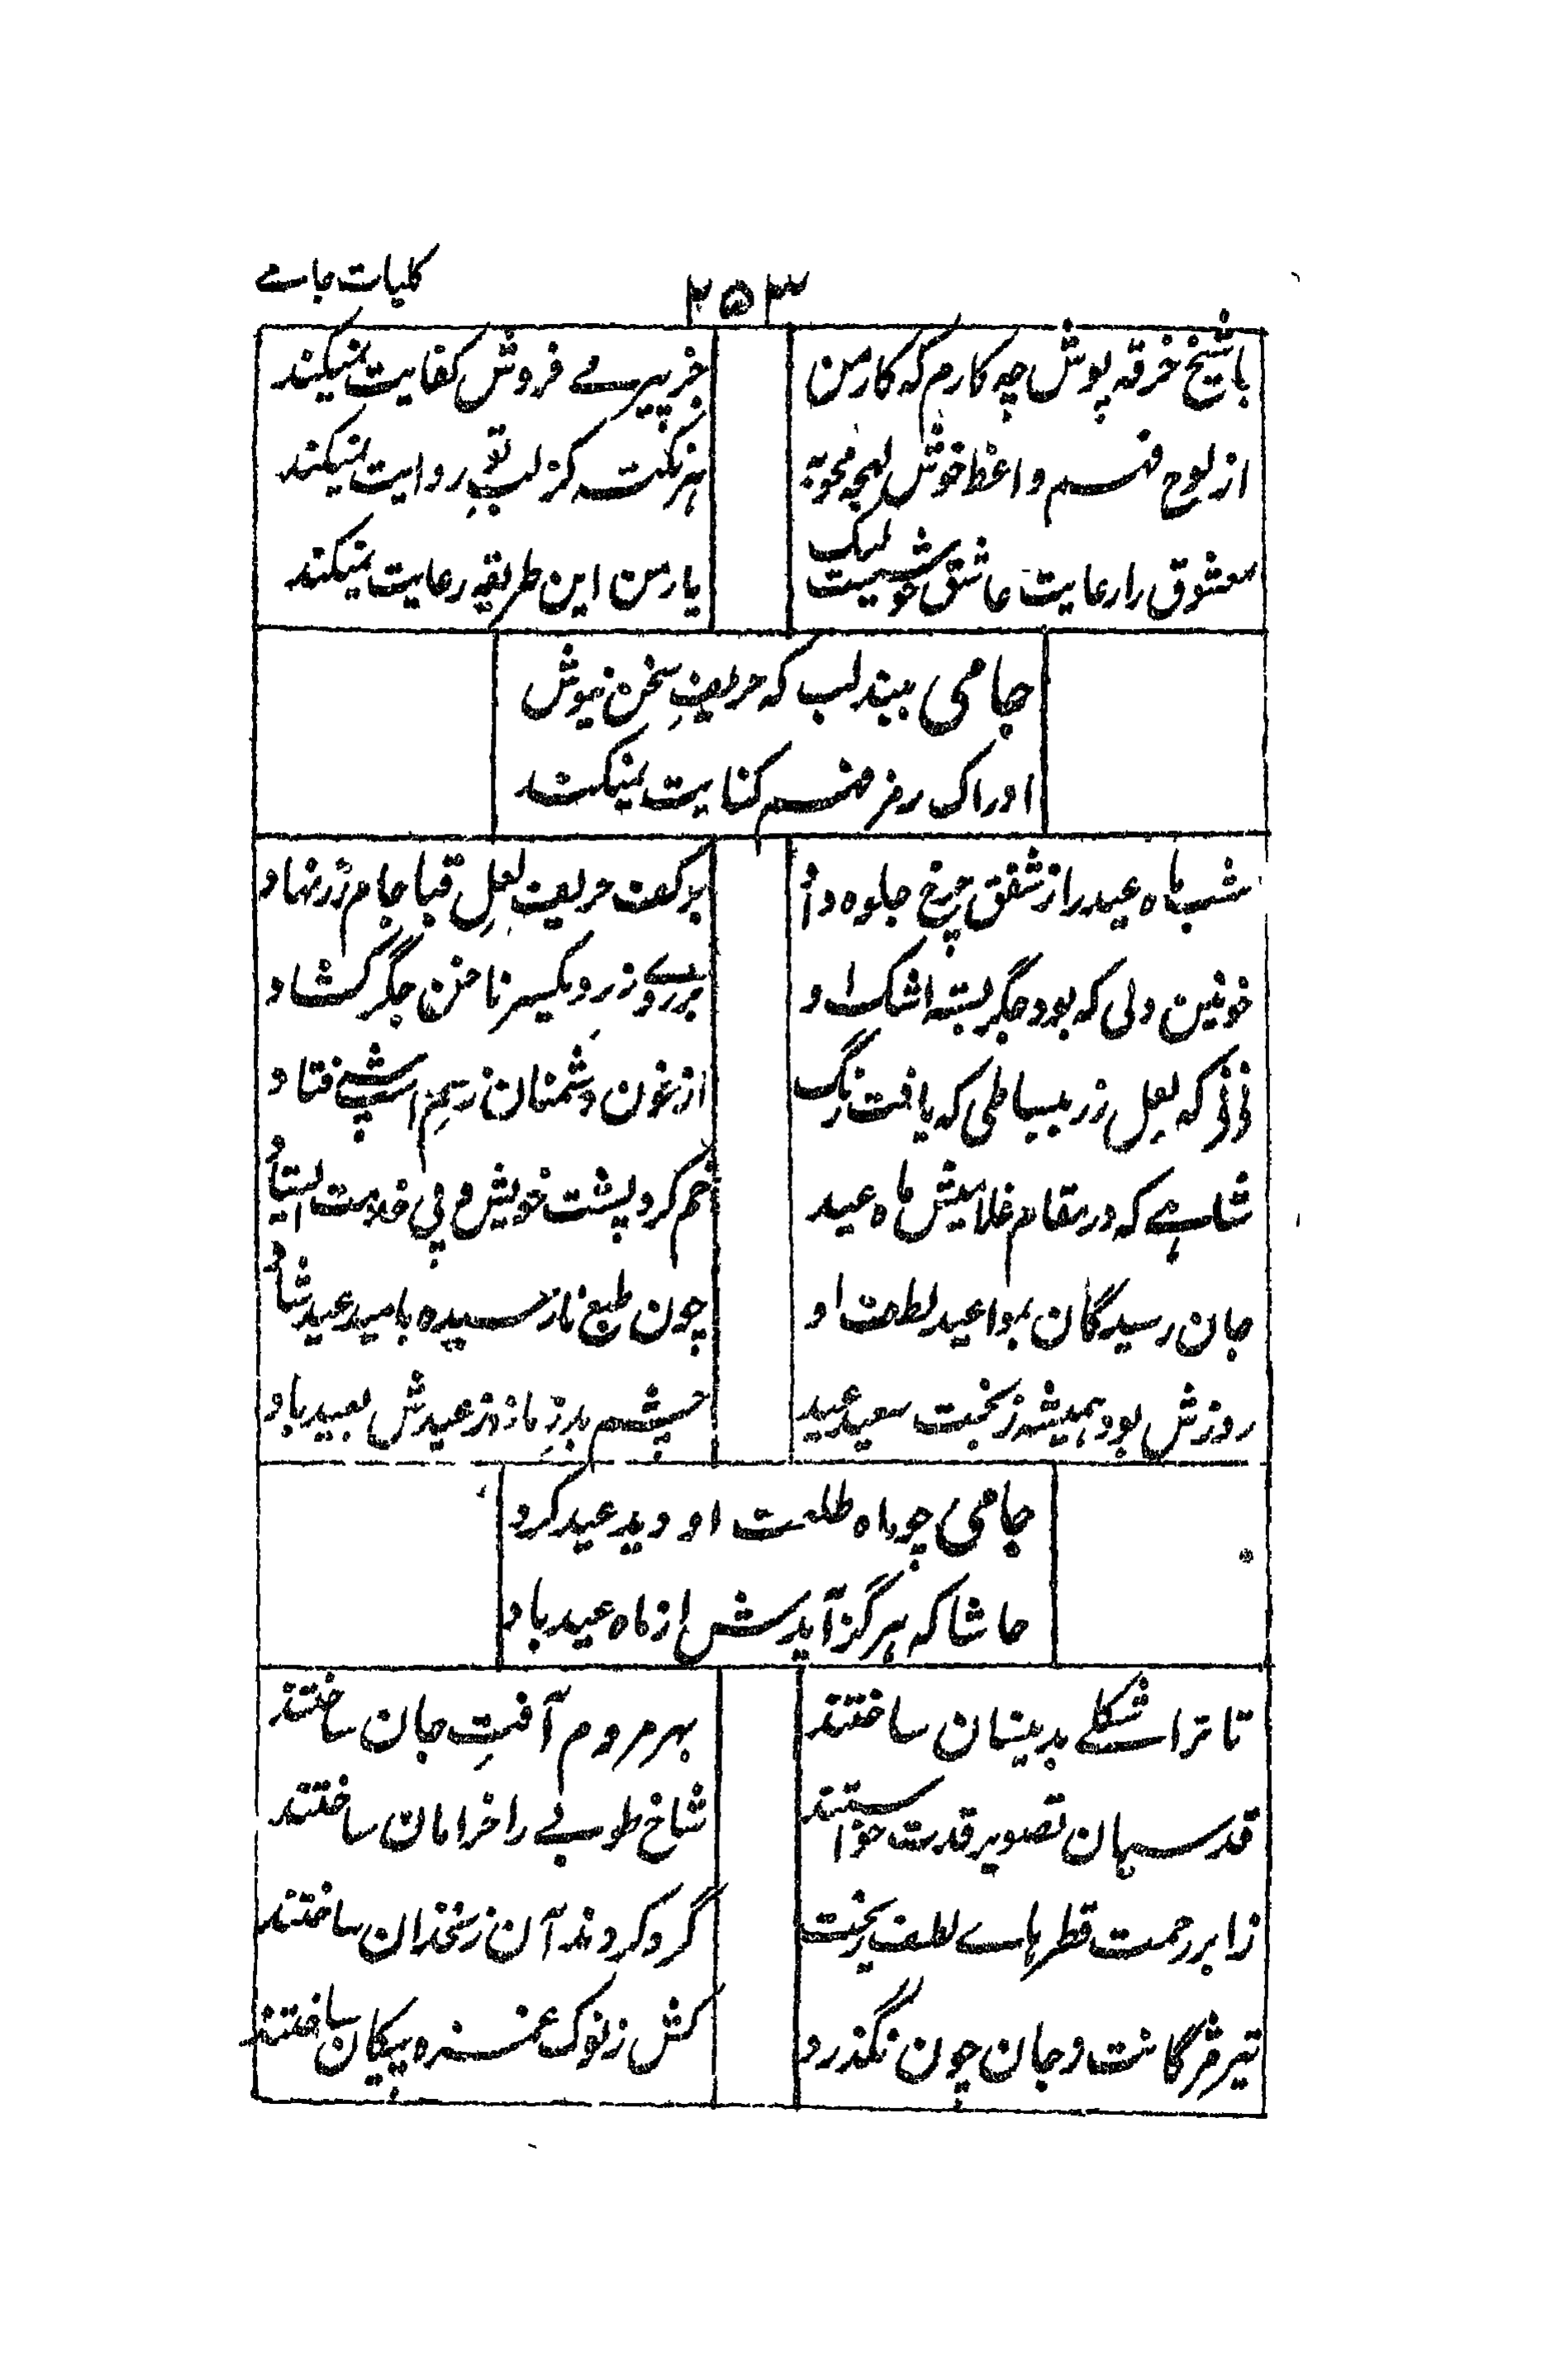 کلیات جامے
۲۵۳
با شیخ خرقه پوش چه کارم که کار من
جز پیر مے فروش کفایت نمیکند
از لوح فهم واعظ خوش لهجه محو به
هر نکته کز لب تو روایت نمیکند
معشوق را رعایت عاشق خوشیست لیک
یار من این طریقه رعایت نمیکند
جامی ببند لب که حریف سخن نیوش
ادراک رمز فهم کنایت نمیکند
شب ماه عید را ز شفق چرخ جلوه داد
بر کف حریف لعل قبا جام زر نهاد
خونین دلی که بود جگر بسته اشک او
بر روے زرد یکسر ناخن جگر گشاد
که لعل زر بساطی که یافت رنگ
از خون دشمنان ز سم اسپ فتاد
شاهے که در مقام غلامیش ماه عید
خم کرد پشت خویش و پی خدمت ایستاد
جان رسیدگان بمواعید لطف او
چون طبع نارسیده بامید عید شاد
روزش بود همیشه ز بخت سعید عید
چشم بد زمانه ز عیدش بعید باد
جامی چو ماه طلعت او دید عید کرد
حاشا که هرگز آیدش از ماه عید یاد
تا ترا شکلے بدینسان ساختند
بهر مردم آفت جان ساختند
قدسیان تصویر قدت خواستند
شاخ طوبے را خرامان ساختند
ز ابر رحمت قطرهاے لطف ریخت
گرد کردند آن زنخدان ساختند
تیر مژگانت و جان چون نگذرد
کش ز نوک غمزه پیکان ساختند